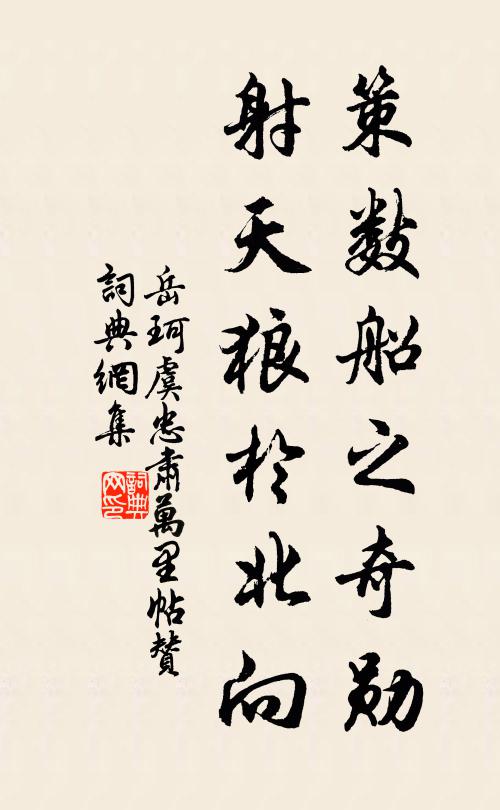 策数船之奇勋
射天狼於北向
岳珂虞忠肅萬里帖贊
詞典網集
詞典网印